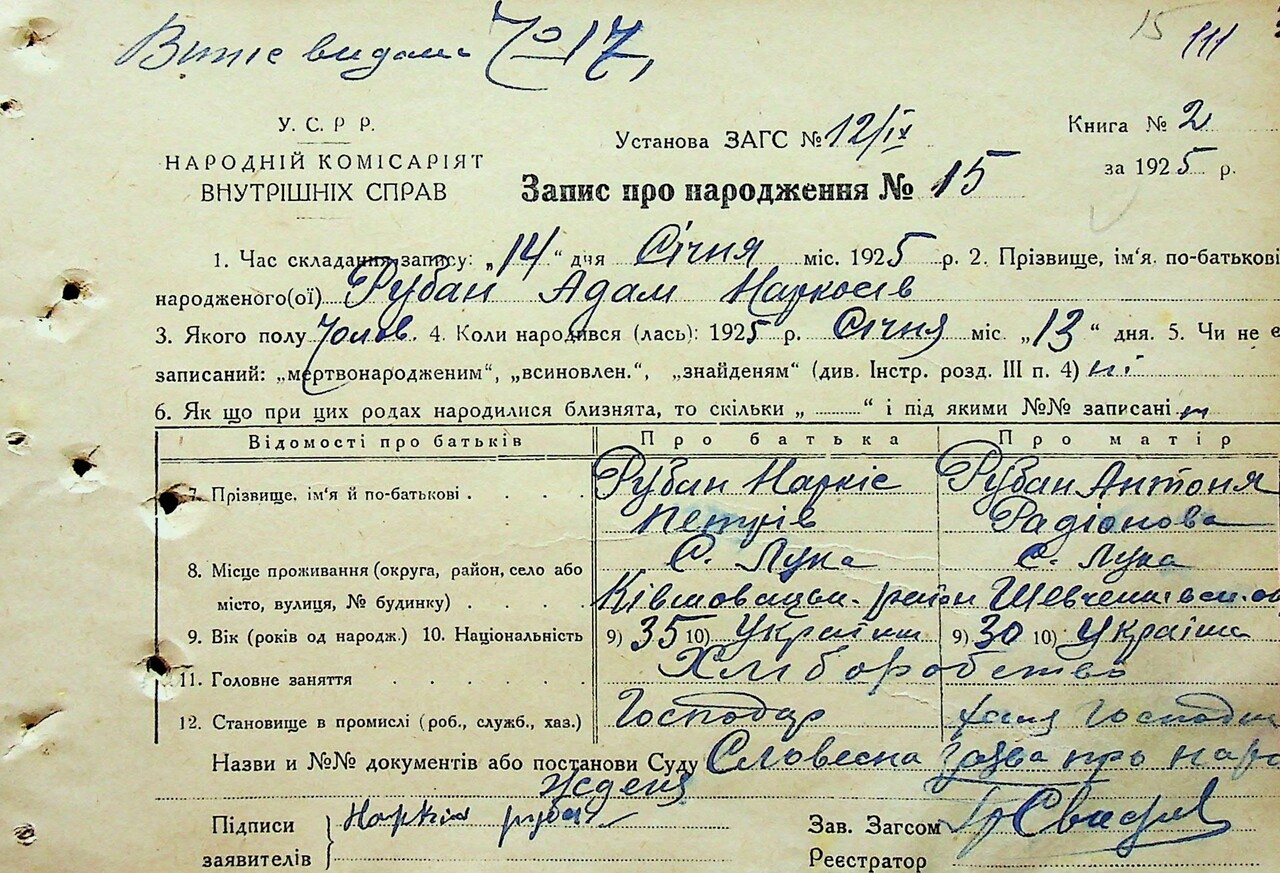 Витяг видано
15 111
У. С. Р. Р.
НАРОДНІЙ КОМІСАРІЯТ
ВНУТРІШНІХ СПРАВ
Установа ЗАГС № 12/IX
Книга № 2
за 1925 р.
Запис про народження № 15
1. Час складання запису: „14“ дня Січня міс. 1925 р. 2. Прізвище, ім'я. по-батькові
народженого(ої) Рубан Адам Наркосів
3. Якого полу Чолов. 4. Коли народився (лась): 1925 р. Січня міс. „13“ дня. 5. Чи не є
записаний: „мертвонародженим“, „всиновлен.“, „знайденям“ (див. Інстр. розд. III п. 4) ні
6. Як що при цих родах народилися близнята, то скільки „ “ і під якими №№ записані
Відомості про батьків Про батька Про матір
7. Прізвище, ім'я й по-батькові Рубан Наркіс Рубан Антоня
Петрів Радіонова
с. Лука с. Лука
8. Місце проживання (округа, район, село або
місто, вулиця, № будинку) район
9. Вік (років од народж.) 10. Національність 9) 35 10) 9) 30 10)
11. Головне заняття Хліборобство
12. Становище в промислі (роб., служб., хаз.) Господар
Назви и №№ документів або постанови Суду Словесна про наро
Підписи
заявителів
Зав. Загсом
Реєстратор